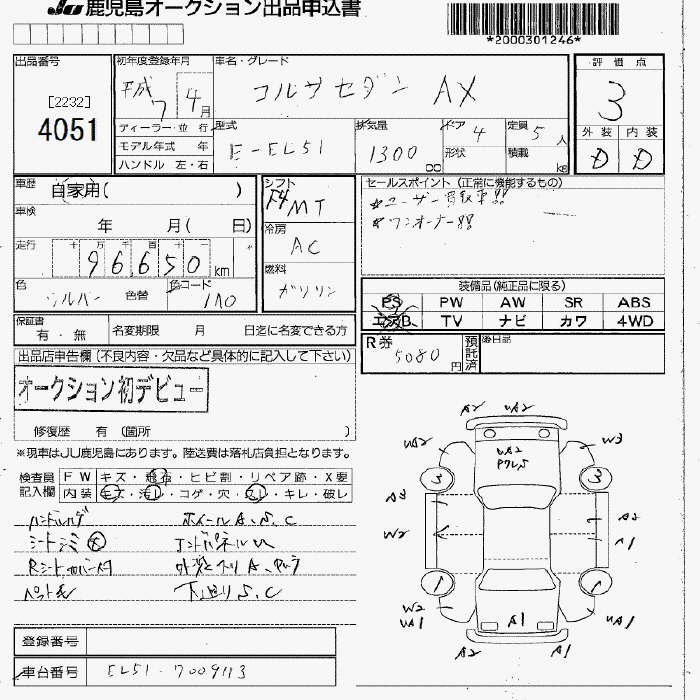 JU 鹿児島オークション出品申込書
*2000301246*
出品番号
[2232]
4051
初年度登録年月
平成 7 4月
車名・グレード
コルサセダン AX
評価点
3
外装 内装
D D
ディーラー・並行
モデル年式 年
ハンドル 左・右
型式
E-EL51
排気量
1300 cc
ドア 4
形状
定員 5人
積載 kg
車歴 自家用( )
車検
年 月( 日)
走行 十万千百十
96,650 km
色 シルバー 色替
色コード 1A0
シフト
F4 MT
冷房
AC
燃料
ガソリン
セールスポイント (正常に機能するもの)
*ユーザー買取車!!
*ワンオーナー!!
装備品(純正品に限る)
PS PW AW SR ABS
エアB. TV ナビ カワ 4WD
保証書
有・無
名変期限 月 日迄に名変できる方
R券 5080 円
預託済
後日品
出品店申告欄(不良内容・欠品など具体的に記入して下さい)
オークション初デビュー
修復歴 有 (箇所 )
※現車はJU鹿児島にあります。陸送費は落札店負担となります。
検査員記入欄
FW キズ・飛石・ヒビ割・リペア跡・X要
内装 キズ・汚レ・コゲ・穴・スレ・キレ・破レ
ホイールA、S、C
エンドパネルU
下廻りS、C
A2 UA2
UA2
UA2
W3
3
3
A3
W2
A2
W2
UA1
A1
UA1
A2
A1
登録番号
車台番号 EL51-7009113